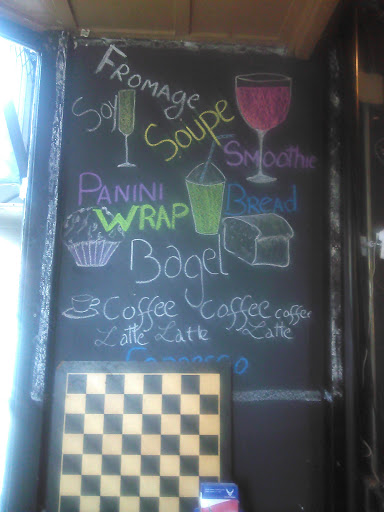 FROMAGE
Soy
SOUPE
SMOOTHIE
PANINI
BREAD
WRAP
Bagel
Coffee Coffee coffee
Latte Latte Latte
ESPRESSO